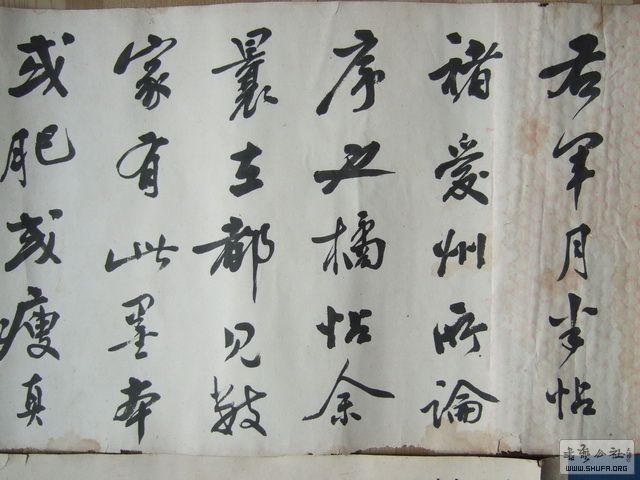 右軍月半帖
褚愛州所論
序橘帖余
曩在都見數
家有此墨本
或肥或瘦真
書藝公社
WWW.SHUFA.ORG